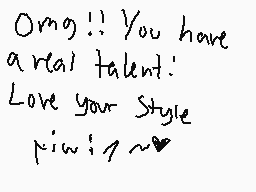 Omg!! You have
a real talent!
Love your style